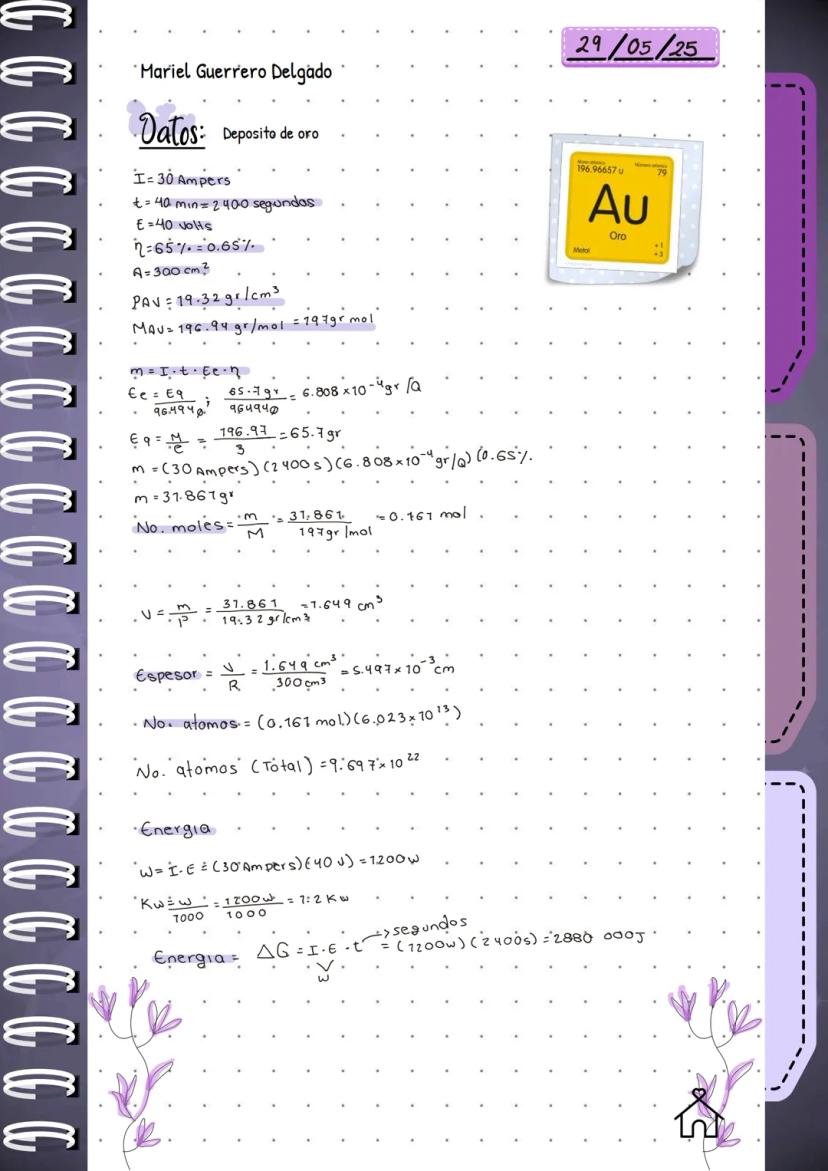 29/05/25
Mariel Guerrero Delgado
Datos: Deposito de oro
Masa atómica 196.96657 u
Número atómico 79
Au
Oro
Metal
+1
+3
I = 30 Ampers
t = 40 min = 2400 segundos
E = 40 volts
η = 65% = 0.65%
A = 300 cm²
PAU = 19.32 gr/cm³
MAU = 196.94 gr/mol = 197gr mol
m = I · t · Ee · η
Ee = Eq/96494Q ; 65.7gr/96494Q = 6.808 x 10⁻⁴ gr/Q
Eq = M/e = 196.97/3 = 65.7gr
m = (30 Ampers) (2400 s) (6.808x10⁻⁴ gr/Q) (0.65%
m = 31.861gr
No. moles = m/M = 31.861/197gr/mol = 0.161 mol
V = m/P = 31.861/19.32 gr/cm³ = 1.649 cm³
Espesor = V/R = 1.649 cm³/300cm³ = 5.497x10⁻³ cm
No. atomos = (0.161 mol) (6.023x10¹³)
No. atomos (Total) = 9.697x10²²
Energia
W = I·E = (30 Ampers) (40 V) = 1200w
Kw = w/1000 = 1200w/1000 = 1.2 Kw
→ segundos
Energia = ΔG = I·E·t = (1200w) (2400s) = 2880 000J
w